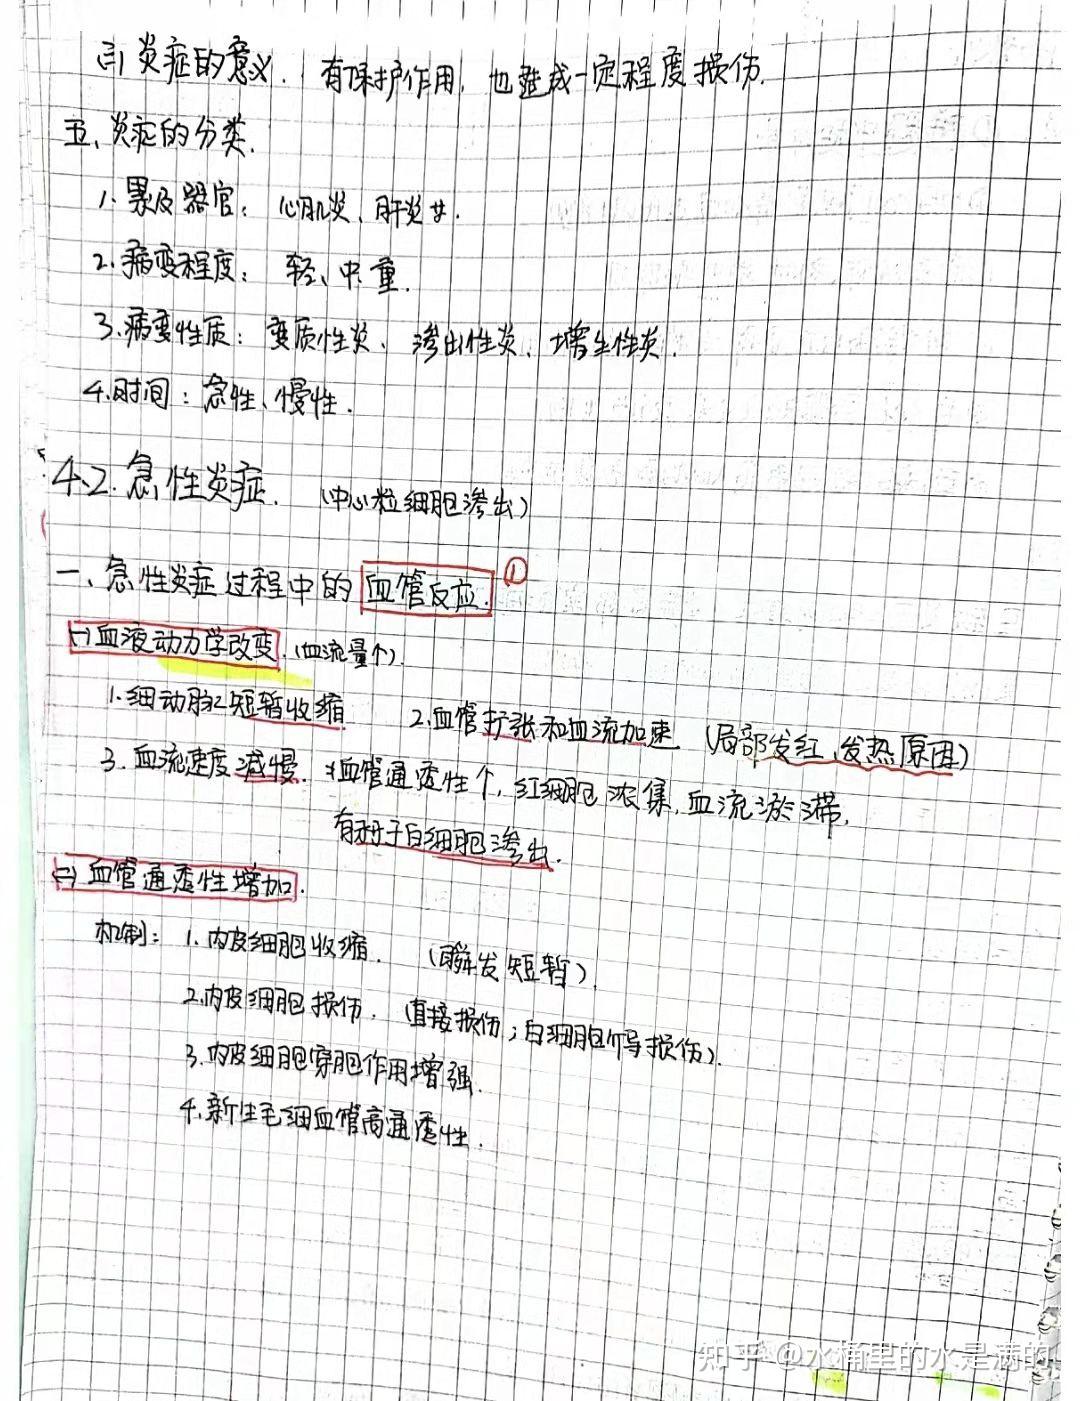 (三) 炎症的意义. 有保护作用, 也造成一定程度损伤.
五、炎症的分类.
1. 累及器官: 心肌炎、肝炎等.
2. 病变程度: 轻、中、重.
3. 病变性质: 变质性炎、渗出性炎、增生性炎.
4. 时间: 急性、慢性.
4.2. 急性炎症. (中心粒细胞渗出)
一、急性炎症过程中的 血管反应. ①
(一) 血液动力学改变. (血流量↑).
1. 细动脉短暂收缩 2. 血管扩张和血流加速 (局部发红、发热原因)
3. 血流速度减慢. *血管通透性↑, 红细胞浓集, 血流淤滞,
有利于白细胞渗出.
(二) 血管通透性增加.
机制: 1. 内皮细胞收缩. (瞬发短暂).
2. 内皮细胞损伤. (直接损伤; 白细胞介导损伤).
3. 内皮细胞穿胞作用增强.
4. 新生毛细血管高通透性.
知乎 @水桶里的水是满的